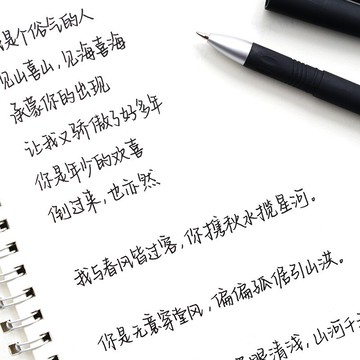 是个俗气的人
见山喜山，见海喜海
承蒙你的出现
让我又骄傲了好多年
你是年少的欢喜
倒过来，也亦然
我与春风皆过客，你携秋水揽星河。
你是无意穿堂风，偏偏孤倨引山洪。
清浅，山河千